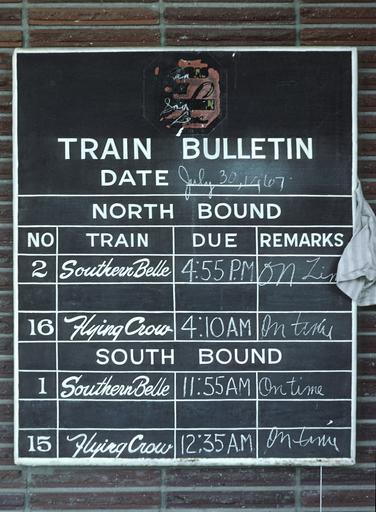 TRAIN BULLETIN
DATE July 30, 1967.
NORTH BOUND
NO TRAIN DUE REMARKS
2 Southern Belle 4:55 P.M. On
16 Flying Crow 4:10 AM On time
SOUTH BOUND
1 Southern Belle 11:55 AM On time
15 Flying Crow 12:35 A.M On time